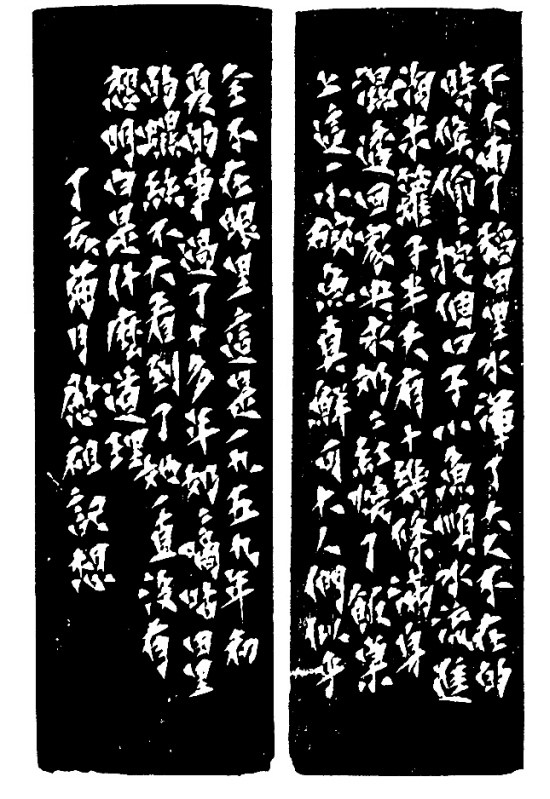 下大雨了稻田里水渾了大人不在的
時候偷偷挖個口子小魚順水流進
淘米籮子半天有十幾條滿身
濕透回家央求奶奶紅燒了飯菜
上這一小碗魚真鮮可大人們似乎
全不在眼里這是一九五九年初
夏的事過了十多年奶奶嘀咕田里
的螺絲不大看到了她一直沒有
想明白是什麼道理
丁亥菊月慰祖記想